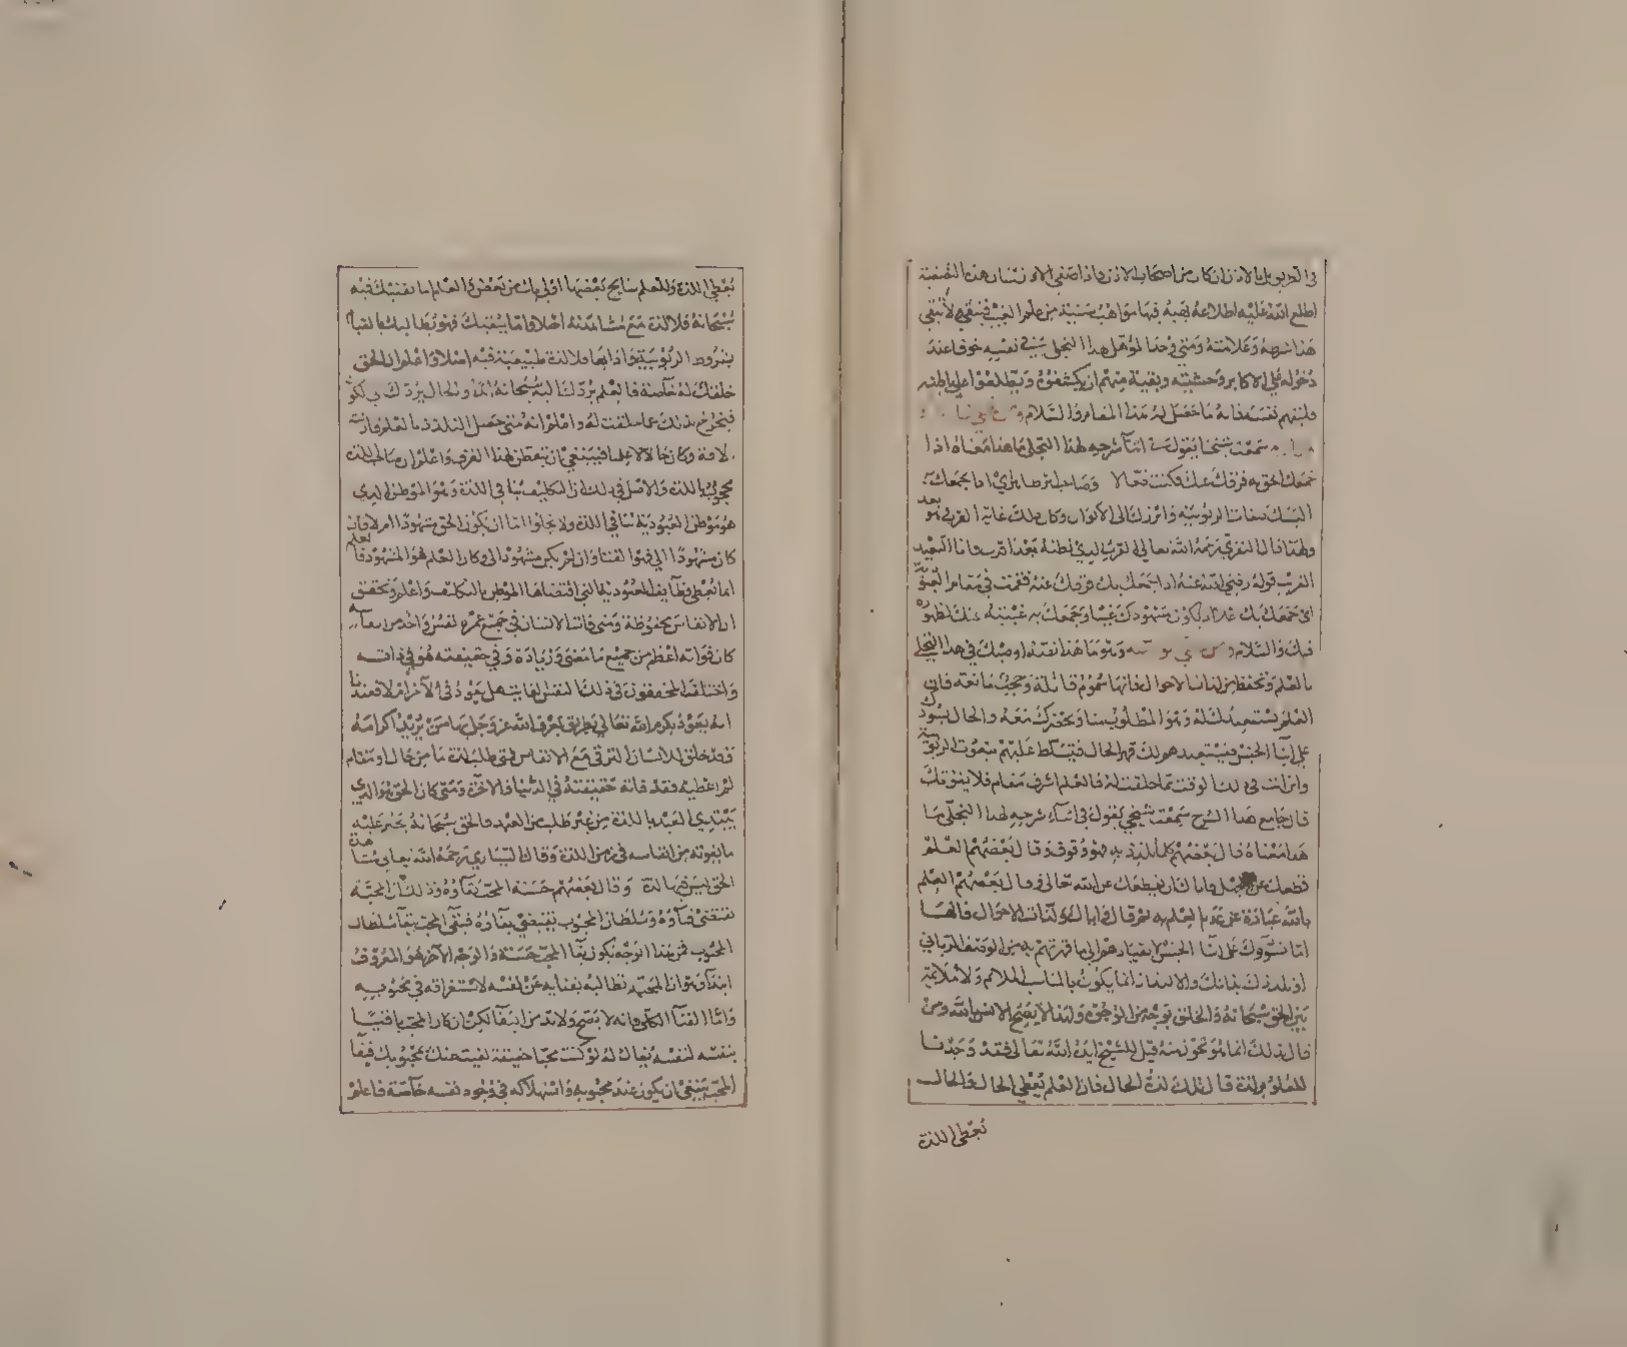 اطلع الله عليه اطلاعة بقيه فيها مواهب سنية من علوم الغيب فينبغي لا تبقى
هذا شرطه وعلامته ومتى وحد المؤهل لهذا التجلي شيء في نفسه خوفا عند
دخوله على الاكابر وخشيته وبقية منهم ان يكشفوه ويطلعوا على باطنه
فليتهم نفسه فانه ما حصل له هذا المقام والسلام
سمعت شيخنا يقول في اثناء شرحه لهذا التجلي ما هذا معناه اذا
جمعك الحق به فرقك عنك فكنت فعالا وصاحب اثر ظاهر في اذا جمعك
اليك صفات الربوبية وانزلك الى الاكوان وكان ذلك غاية القرب
ولهذا قال النفري رحمه الله تعالى القرب الذي تظنه بعد انت وانا البعيد
القريب قوله رضي الله عنه اذا جمعك بك فرقك عنه فقمت في مقام العبودية
اي جمعك بك عند كون شهودك وجمعك به غيبته عنك لظهوره
فيك والسلام وهذا نصه اوصيك في هذا التجلي
بالعلم وتحفظ من لذات الاحوال فانها سموم قاتلة وحجب مانعة فان
العلم يستعبدك له وهو المطلوب منا ويحضرك معه والحال يسودك
على ابناء الجنس فيستعبدهم لك قهر الحال فتتسلط عليهم بنعوت الربوبية
واين انت في ذلك الوقت مما خلقت له فالعلم اشرف مقام فلا يفوتك
قال جامع هذا الشرح سمعت شيخي يقول في اثناء شرحه لهذا التجلي ما
هذا معناه قال بعضهم كل ملذوذ به فهو دتوقد قال بعضهم العلم
قطعك عن الجهل فاياك ان يقطعك عن الله تعالى وقال بعضهم العلم
بالله عبارة عن عدم العلم به ثم قال فاياك ولذات الاحوال فانها
انما تسودك على ابناء الجنس بانقيادهم الى ما قهرتهم به من الوصف الرباني
او تلذذك بذاتك والالتذاذ انما يكون بالمناسب الملائم ولا ملايمة
بين الحق سبحانه والخلق بوجه من الوجوه ولهذا لا يصح الانس بالله ومن
قال ذلك انما هو تجوز منه قيل للشيخ ايده الله تعالى فقد وجدنا
للعلوم لذة قال تلك لذة الحال فان العلم يعطي الحال والحال
تعطي اللذة
تعطي اللذة وللعلم نتايج بعضها اولى بك من بعض والعلم اما يفنيك فيه
سبحانه فلا لذة مع مشاهدته اصلا واما يبقيك فهو يطالبك بالقيام
بشروط الربوبية وادابها فلا لذة طبيعية فيه اصلا واعلم ان الحق
خلقك له خاصة فالعلم يردك اليه سبحانه دائما والحال يردك للكون
فتخرج بذلك عما خلقت له واعلم انه متى حصل التلذذ بالعلم قارنته
الآفة وكان حالا لا علما فينبغي ان يتفطن لهذا الفرق واعلم ان صاحب اللذة
محجوب باللذة والاصل في ذلك ان التكليف ينافي اللذة وهو الموطن الذي
هو موطن العبودية تنافي اللذة ولا يخلوا اما ان يكون الحق مشهودا ام لا فان
كان مشهودا الذي فهو الفناء وان لم يكن مشهودا لي وكان العلم هو المشهود فالعلم
انما يعطي وظايف العبودية التي اقتضاها الموطن بالتكليف واعلم وتحقق
ان الانفاس محفوظة ومتى فات الانسان في جميع عمره نفس واحد من انفاسه
كان فواته اعظم من جميع ما مضى وزيادة وفي حقيقته هو في ذاته
واختلف المحققون في ذلك النفس الفايت هل يعود في الآخرة ام لا فعندنا
انه يعود بكرم الله تعالى بطريق يعرف الله عز وجل بها من يريد اكرامه
وقد خلق الانسان للترقي مع الانفاس فمتى طلب لذة ما من حال او مقام
لم اعطيه فقد فاته حقيقته في الدنيا والآخرة ومتى كان الحق هو الذي
يبتدي العبد باللذة من غير طلب من العبد فالحق سبحانه يجبر عليه
ما يفوته من انفاسه في زمن اللذة وقال السياري رحمه الله تعالى مشاهدة
الحق ليس فيها لذة وقال بعضهم حسنة المحب بقاؤه وذلك ان المحبة
تقتضي فناؤه وسلطان المحبوب يقتضي بقاؤه فبقي المحب بقاء سلطان
المحبوب فمن هذا الوجه يكون بقاء المحب حسنة والوجه الآخر هو المعروف
ابتداء وهو ان المحبة تطالبه بفنايه عن نفسه لاستغراقه في محبوبه
واما الفناء الكلي فانه لا يصح ولا بد من البقاء لكن ان كان المحب باقيا
بنفسه لنفسه يقال له لو كنت محبا حقيقة لفنيت عنك بمحبوبك فبقاء
المحب ينبغي ان يكون عند محبوبه واستهلاكه في وجود نفسه خاصة فاعلم